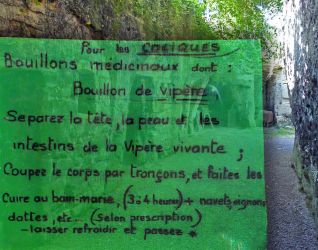 Pour les COLIQUES
Bouillons médicinaux dont :
Bouillon de Vipère
Separez la tête, la peau et les
intestins de la Vipère vivante ;
Coupez le corps par tronçons, et faites les
Cuire au bain-marie, (3 à 4 heures) + navets, oignons
dattes, etc... (Selon prescription)
-laisser refroidir et passez *